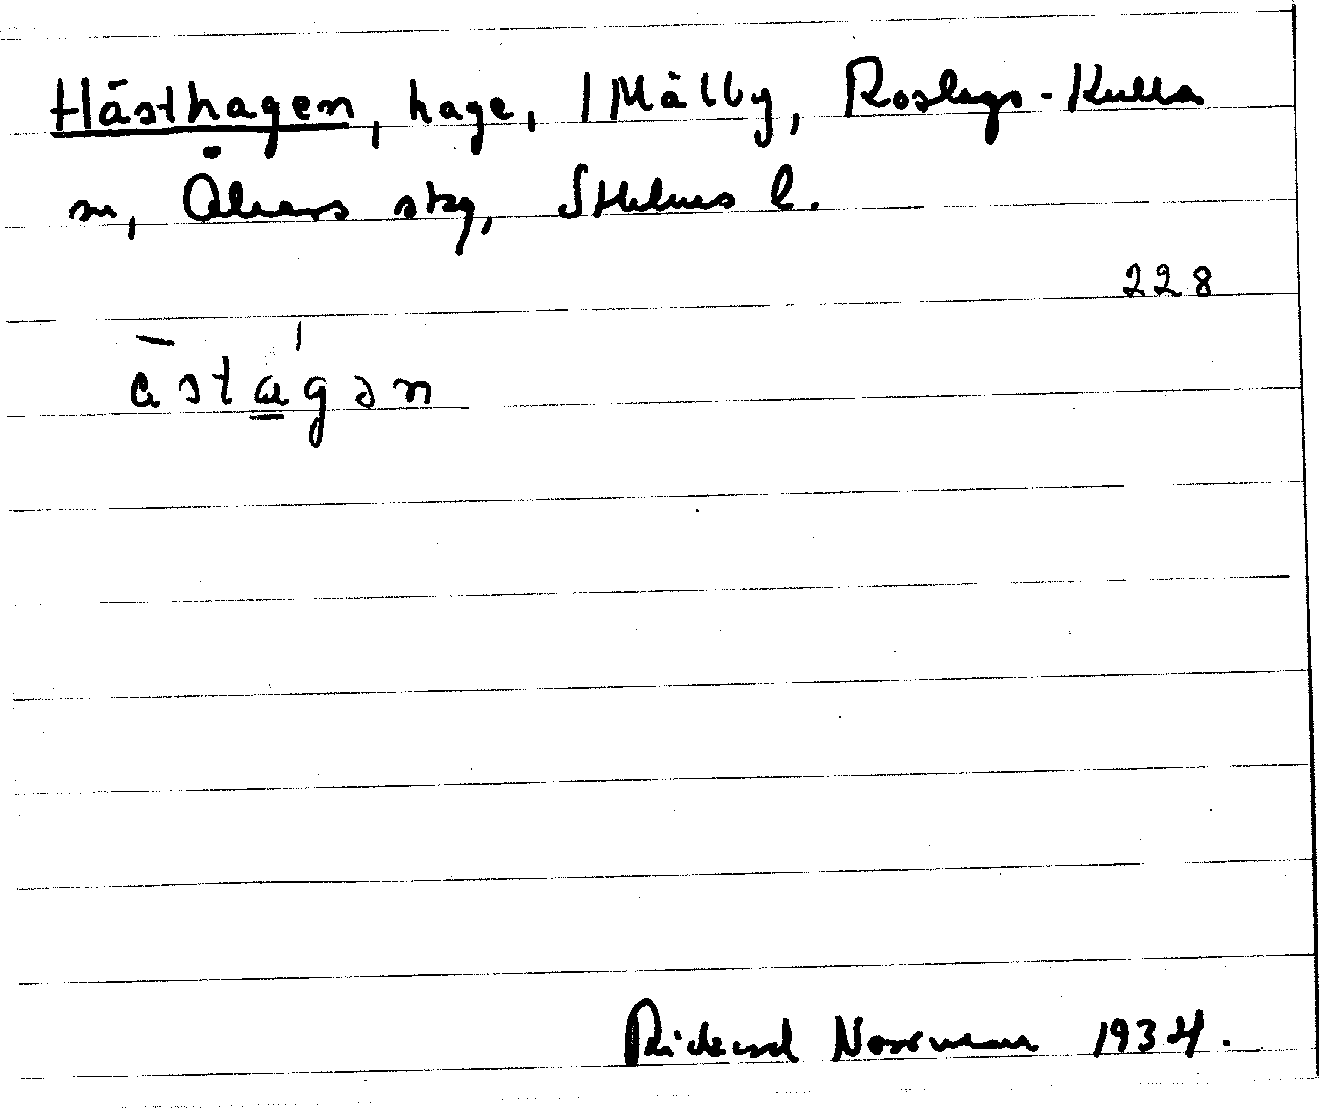 Hästhagen, hage, 1 Mälby, Roslags-Kulla
sn, Åkers skg, Sthlms l.
228
ästa̲gən
Rickard Norrman 1934.